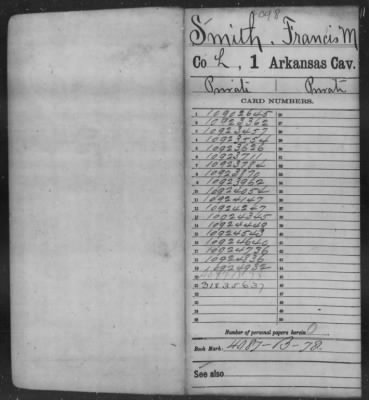 1098
Smith, Francis M
Co L, 1 Arkansas Cav.
Private Private
CARD NUMBERS.
1 10902645 26
2 10923362 27
3 10923457 28
4 10923554 29
5 10923626 30
6 10923711 31
7 10923784 32
8 10923870 33
9 10923962 34
10 10924054 35
11 10924147 36
12 10924247 37
13 10924345 38
14 10924449 39
15 10924543 40
16 10924640 41
17 10924736 42
18 10924836 43
19 10924932 44
20 45
21 31835637 46
22 47
23 48
24 49
25 50
Number of personal papers herein 0
Book Mark: 4087-B-78
See also